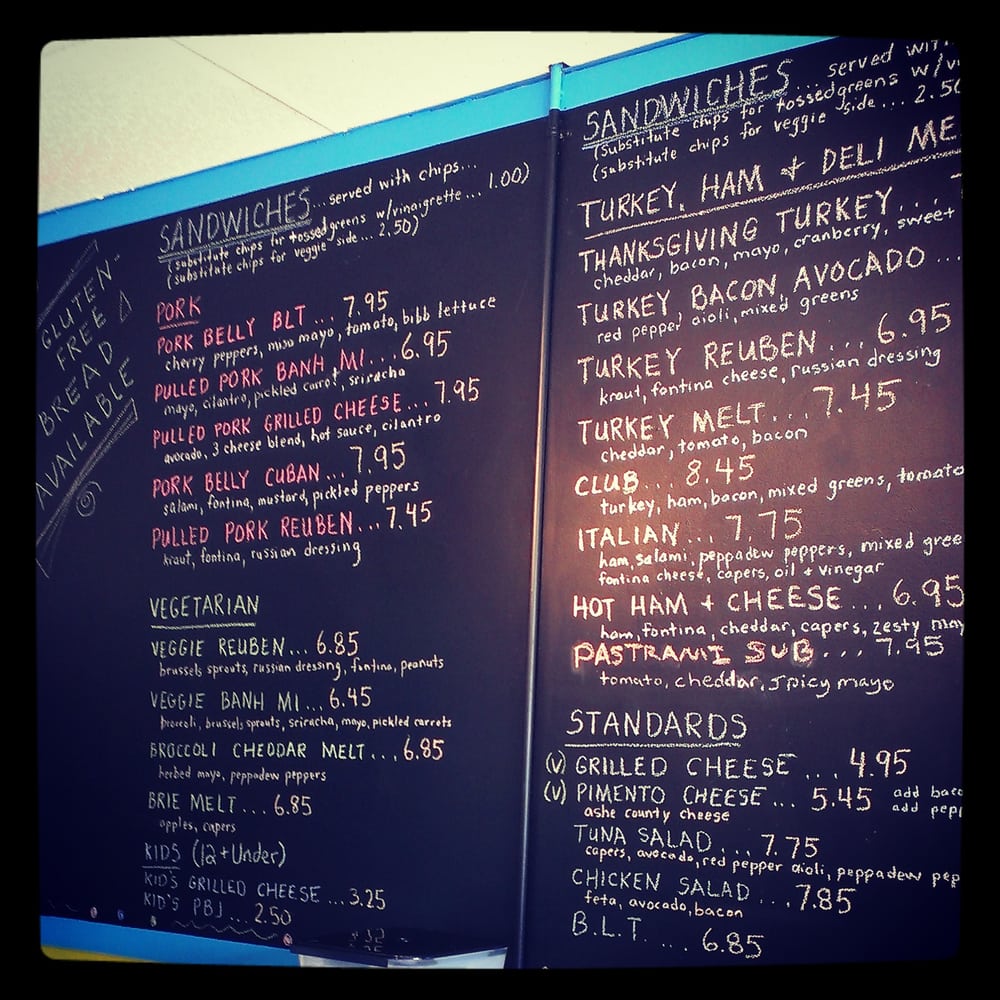 GLUTEN-
FREE
BREAD
AVAILABLE
SANDWICHES...served with chips...
(substitute chips for tossed greens w/vinaigrette... 1.00)
(substitute chips for veggie side... 2.50)
PORK
PORK BELLY BLT... 7.95
cherry peppers, miso mayo, tomato, bibb lettuce
PULLED PORK BANH MI...6.95
mayo, cilantro, pickled carrot, sriracha
PULLED PORK GRILLED CHEESE...7.95
avocado, 3 cheese blend, hot sauce, cilantro
PORK BELLY CUBAN...7.95
salami, fontina, mustard, pickled peppers
PULLED PORK REUBEN...7.45
kraut, fontina, russian dressing
VEGETARIAN
VEGGIE REUBEN...6.85
brussels sprouts, russian dressing, fontina, peanuts
VEGGIE BANH MI...6.45
broccoli, brussels sprouts, sriracha, mayo, pickled carrots
BROCCOLI CHEDDAR MELT...6.85
herbed mayo, peppadew peppers
BRIE MELT...6.85
apples, capers
KIDS (12+Under)
KID'S GRILLED CHEESE...3.25
KID'S PBJ...2.50
SANDWICHES...served wit
(substitute chips for tossed greens w/vi
(substitute chips for veggie side... 2.50
TURKEY, HAM + DELI ME
THANKSGIVING TURKEY...
cheddar, bacon, mayo, cranberry, sweet
TURKEY, BACON, AVOCADO...
red pepper aioli, mixed greens
TURKEY REUBEN...6.95
kraut, fontina cheese, russian dressing
TURKEY MELT...7.45
cheddar, tomato, bacon
CLUB...8.45
turkey, ham, bacon, mixed greens, tomato
ITALIAN...7.75
ham, salami, peppadew peppers, mixed gree
fontina cheese, capers, oil + vinegar
HOT HAM + CHEESE...6.95
ham, fontina, cheddar, capers, zesty may
PASTRAMI SUB...7.95
tomato, cheddar, spicy mayo
STANDARDS
(V) GRILLED CHEESE...4.95
(V) PIMENTO CHEESE...5.45 add baco
ashe county cheese add pep
TUNA SALAD...7.75
capers, avocado, red pepper aioli, peppadew pep
CHICKEN SALAD...7.85
feta, avocado, bacon
B.L.T....6.85